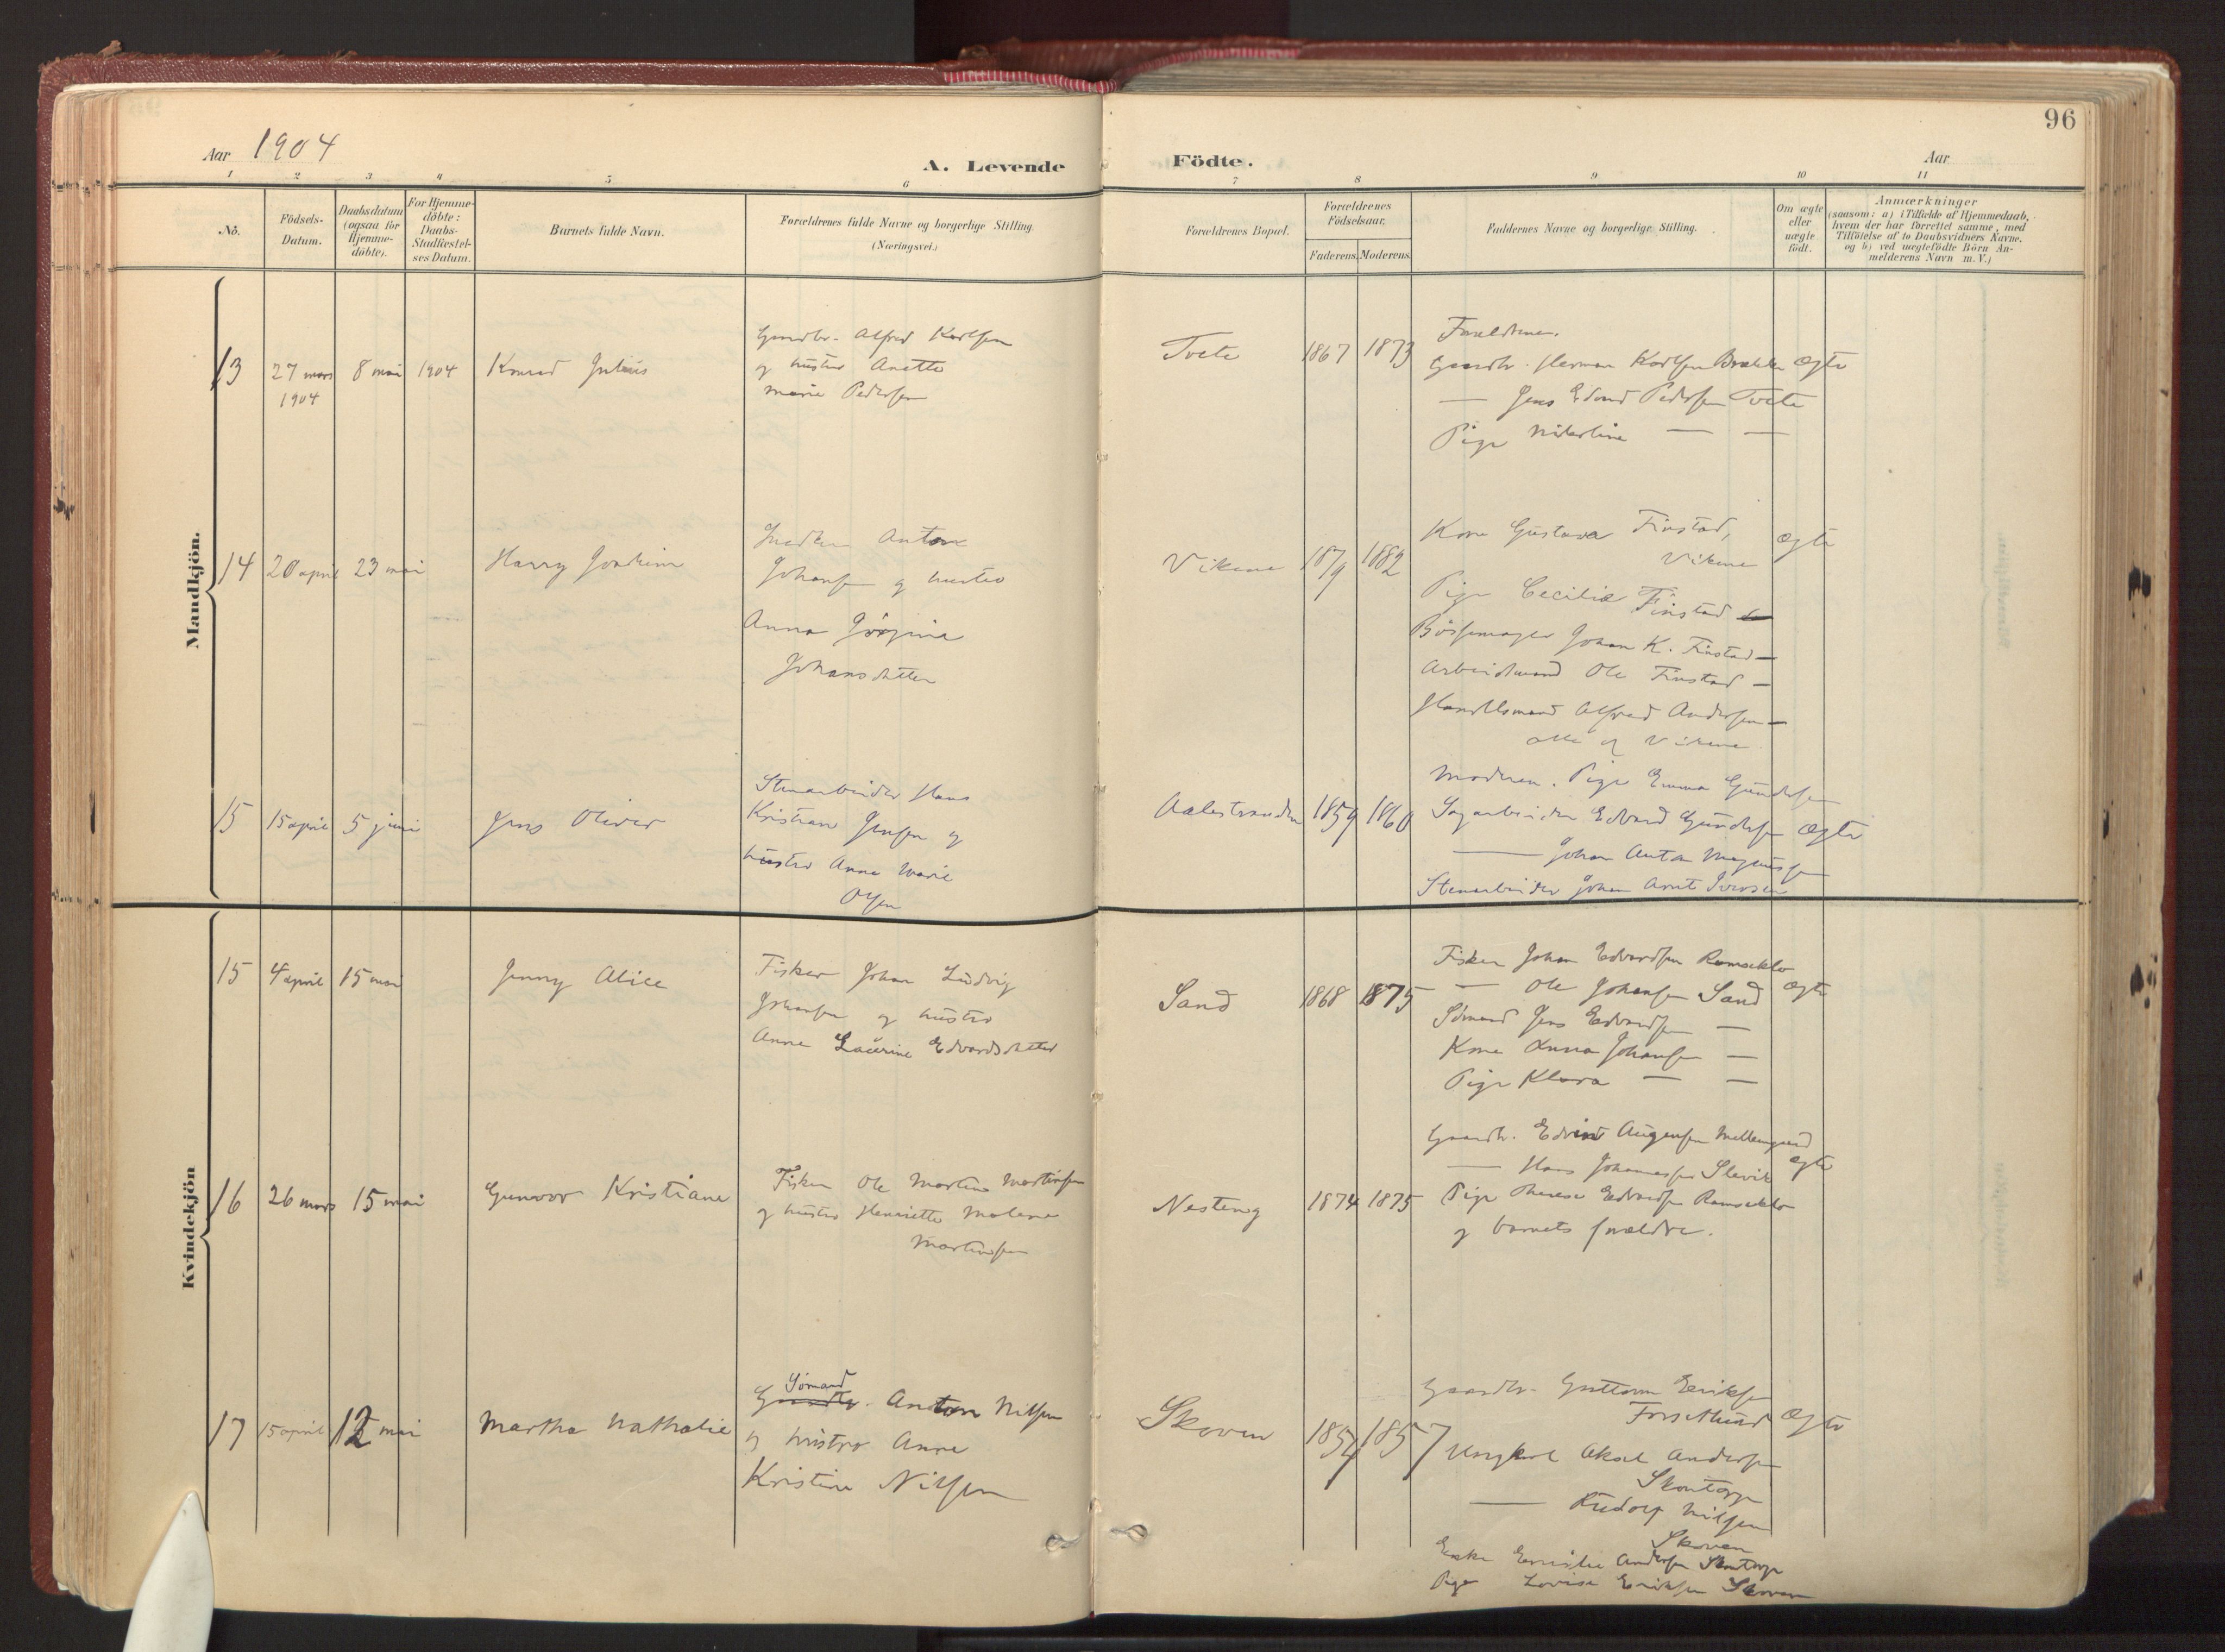 96
Aar 1904
A. Levende
Födte.
Aar
1
2
3
4
5
6
7
8
9
10
11
No.
Födsels-
Datum.
Daabsdatum
(ogsaa for
Hjemme-
döbte).
For Hjemme-
döbte:
Daabs-
Stadfæstel-
ses Datum.
Barnets fulde Navn.
Forældrenes fulde Navne og borgerlige Stilling.
(Næringsvei.)
Forældrenes Bopæl.
Forældrenes
Födselsaar.
Faderens.
Moderens.
Faddernes Navne og borgerlige Stilling.
Om ægte
eller
uægte
födt.
Anmærkninger
(saasom: a) i Tilfælde af Hjemmedaab,
hvem der har forrettet samme, med
Tilföielse af to Daabsvidners Navne.
og b) ved uægtefödte Börn An-
melderens Navn m. V.)
Mandkjön.
13
27 mars
1904
8 mai
1904
Konrad Julius
Gaardbr. Alfred Karlsen
og hustru Anette
Marie Pedersen
Tvete
1867
1873
Forældrene.
Gaardbr. Herman Karlsen Brække
— Jens Edvard Pedersen Tvete
Pige — —
Ægte
14
20 april
23 mai
Harry Joachim
Anton
Johansen og hustru
Anna
Johansdatter
Vikene
1879
1882
Kone Gustava Finstad,
Vikene
Pige Cecilie Finstad —
Bössemager Johan K. Finstad —
Arbeidsmand Ole Finstad —
Handelsmand Alfred Andersen —
alle af Vikene
Ægte
15
15 april
5 juni
Jens Oliver
Stenarbeider Hans
Kristian Jensen og
hustru Anna Marie
Olsen
Aalestranden
1859
1860
Moderen. Pige Emma Gundersen
Sagarbeider Edvard Gundersen
— Johan Anton Magnussen
Stenarbeider Johan Arnt Iversen
Ægte
Kvindekjön
15
4 april
15 mai
Jenny Alice
Fisker Johan Ludvig
Johansen og hustru
Anna Laurine Edvardsdatter
Sand
1868
1875
Fisker Johan Edvardsen Ramseklo
— Ole Johansen Sand
Sömand Jens Edvardsen —
Kone Anna Johansen —
Pige Klara — —
Ægte
16
26 mars
15 mai
Gunvor Kristiane
Fisker Ole Martin Martinsen
og hustru Henriette Malene
Martinsen
Nesteng
1874
1875
Gaardbr. Edvin Augensen Mellemgaard
— Hans Johannessen Slevik
Pige Therese Edvardsen Ramseklo
og barnets forældre.
Ægte
17
15 april
12 mai
Martha Nathalie
Sömand
Gaardbr. Anton Nilsen
og hustru Anne
Kristine Nilsen
Skoven
1854
1857
Gaardbr. Guttorm Eriksen
Ungkarl Aksel Andersen
Skontorp
— Rudolf Nilsen
Skoven
Enke Emilie Andersen Skontorp
Pige Lovise Eriksen Skoven
Ægte